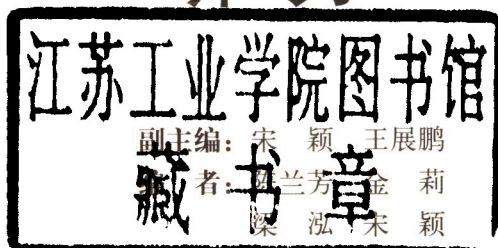 江苏工业学院图书馆
副主编：宋 颖 王展鹏
藏书章
者： 兰芳 金 莉
梁 泓 宋 颖